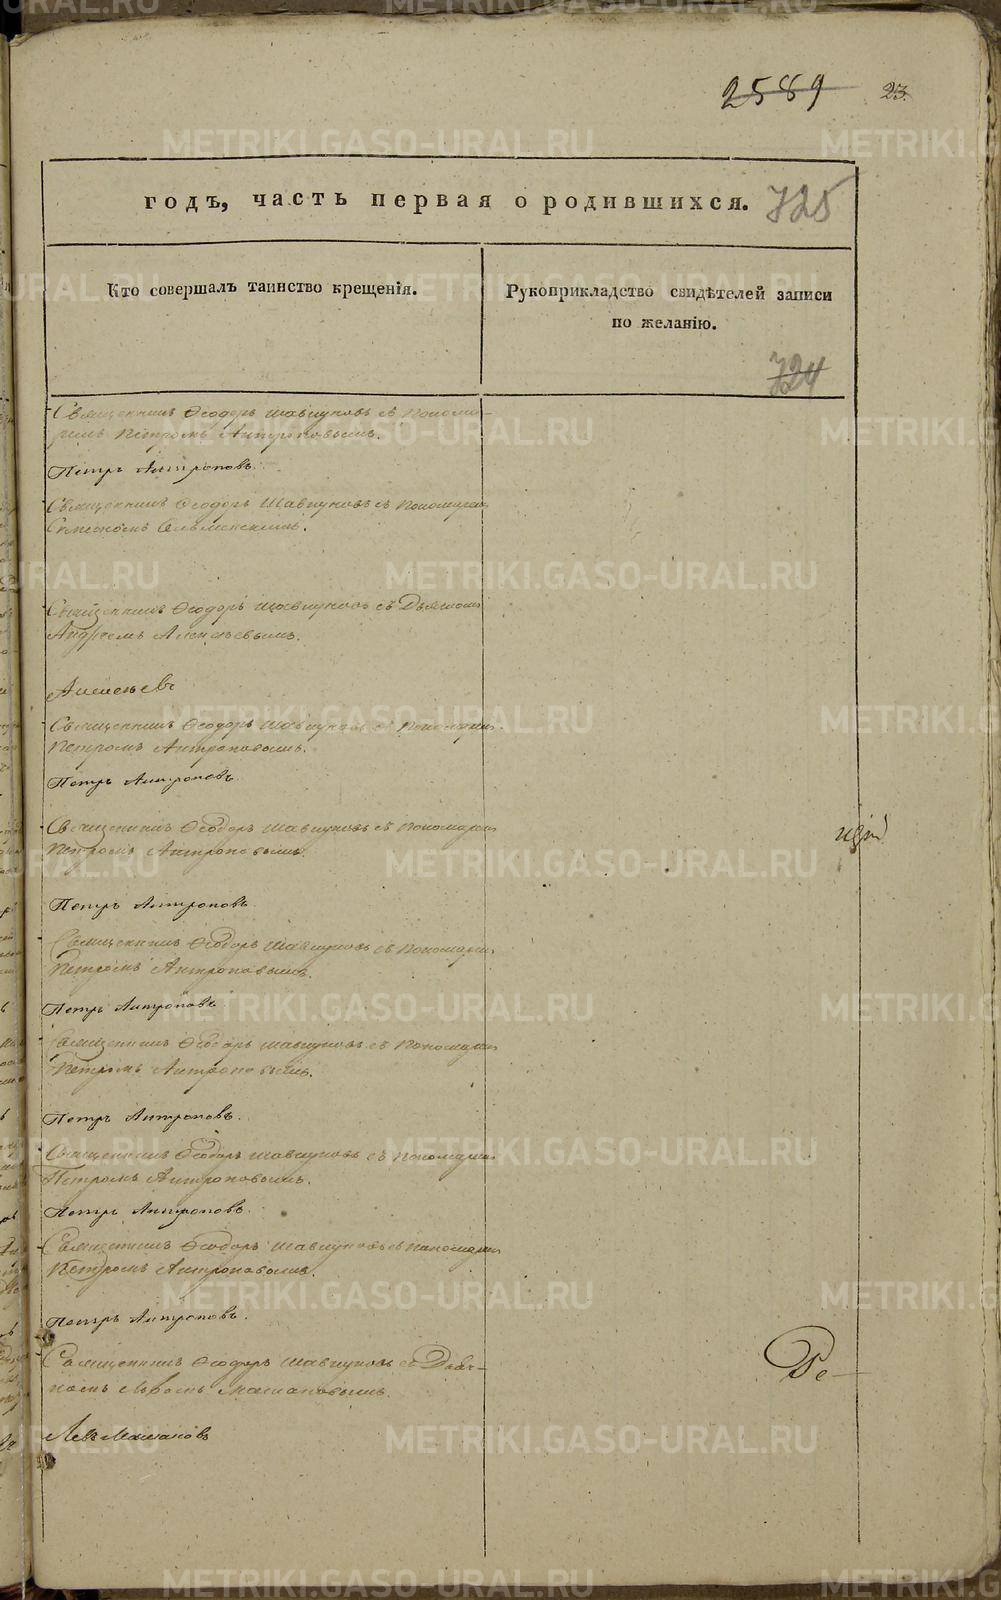 2589 23.
годъ, часть первая о родившихся. 725
Кто совершалъ таинство крещенія.
Рукоприкладство свидѣтелей записи
по желанію.
724
Священникъ Ѳеодоръ Шавкуновъ съ Понома-
ремъ Петромъ Антроповымъ.
Петръ Антроповъ.
Священникъ Ѳеодоръ Шавкуновъ съ Пономаремъ
Священникъ Ѳеодоръ Шавкуновъ съ Дьякономъ
Андреемъ Алексѣевымъ.
Алексѣевъ
Священникъ Ѳеодоръ Шавкуновъ съ Пономаремъ
Петромъ Антроповымъ.
Петръ Антроповъ.
Священникъ Ѳеодоръ Шавкуновъ съ Пономаремъ
Петромъ Антроповымъ.
Петръ Антроповъ.
Священникъ Ѳеодоръ Шавкуновъ съ Пономаремъ
Петромъ Антроповымъ.
Петръ Антроповъ
Священникъ Ѳеодоръ Шавкуновъ съ Пономаремъ
Петромъ Антроповымъ.
Петръ Антроповъ.
Священникъ Ѳеодоръ Шавкуновъ съ Пономаремъ
Петромъ Антроповымъ.
Петръ Антроповъ.
Священникъ Ѳеодоръ Шавкуновъ съ Пономаремъ
Петромъ Антроповымъ.
Петръ Антроповъ.
Священникъ Ѳеодоръ Шавкуновъ съ Дьяч-
комъ Львомъ
Левъ
METRIKI.GASO-URAL.RU